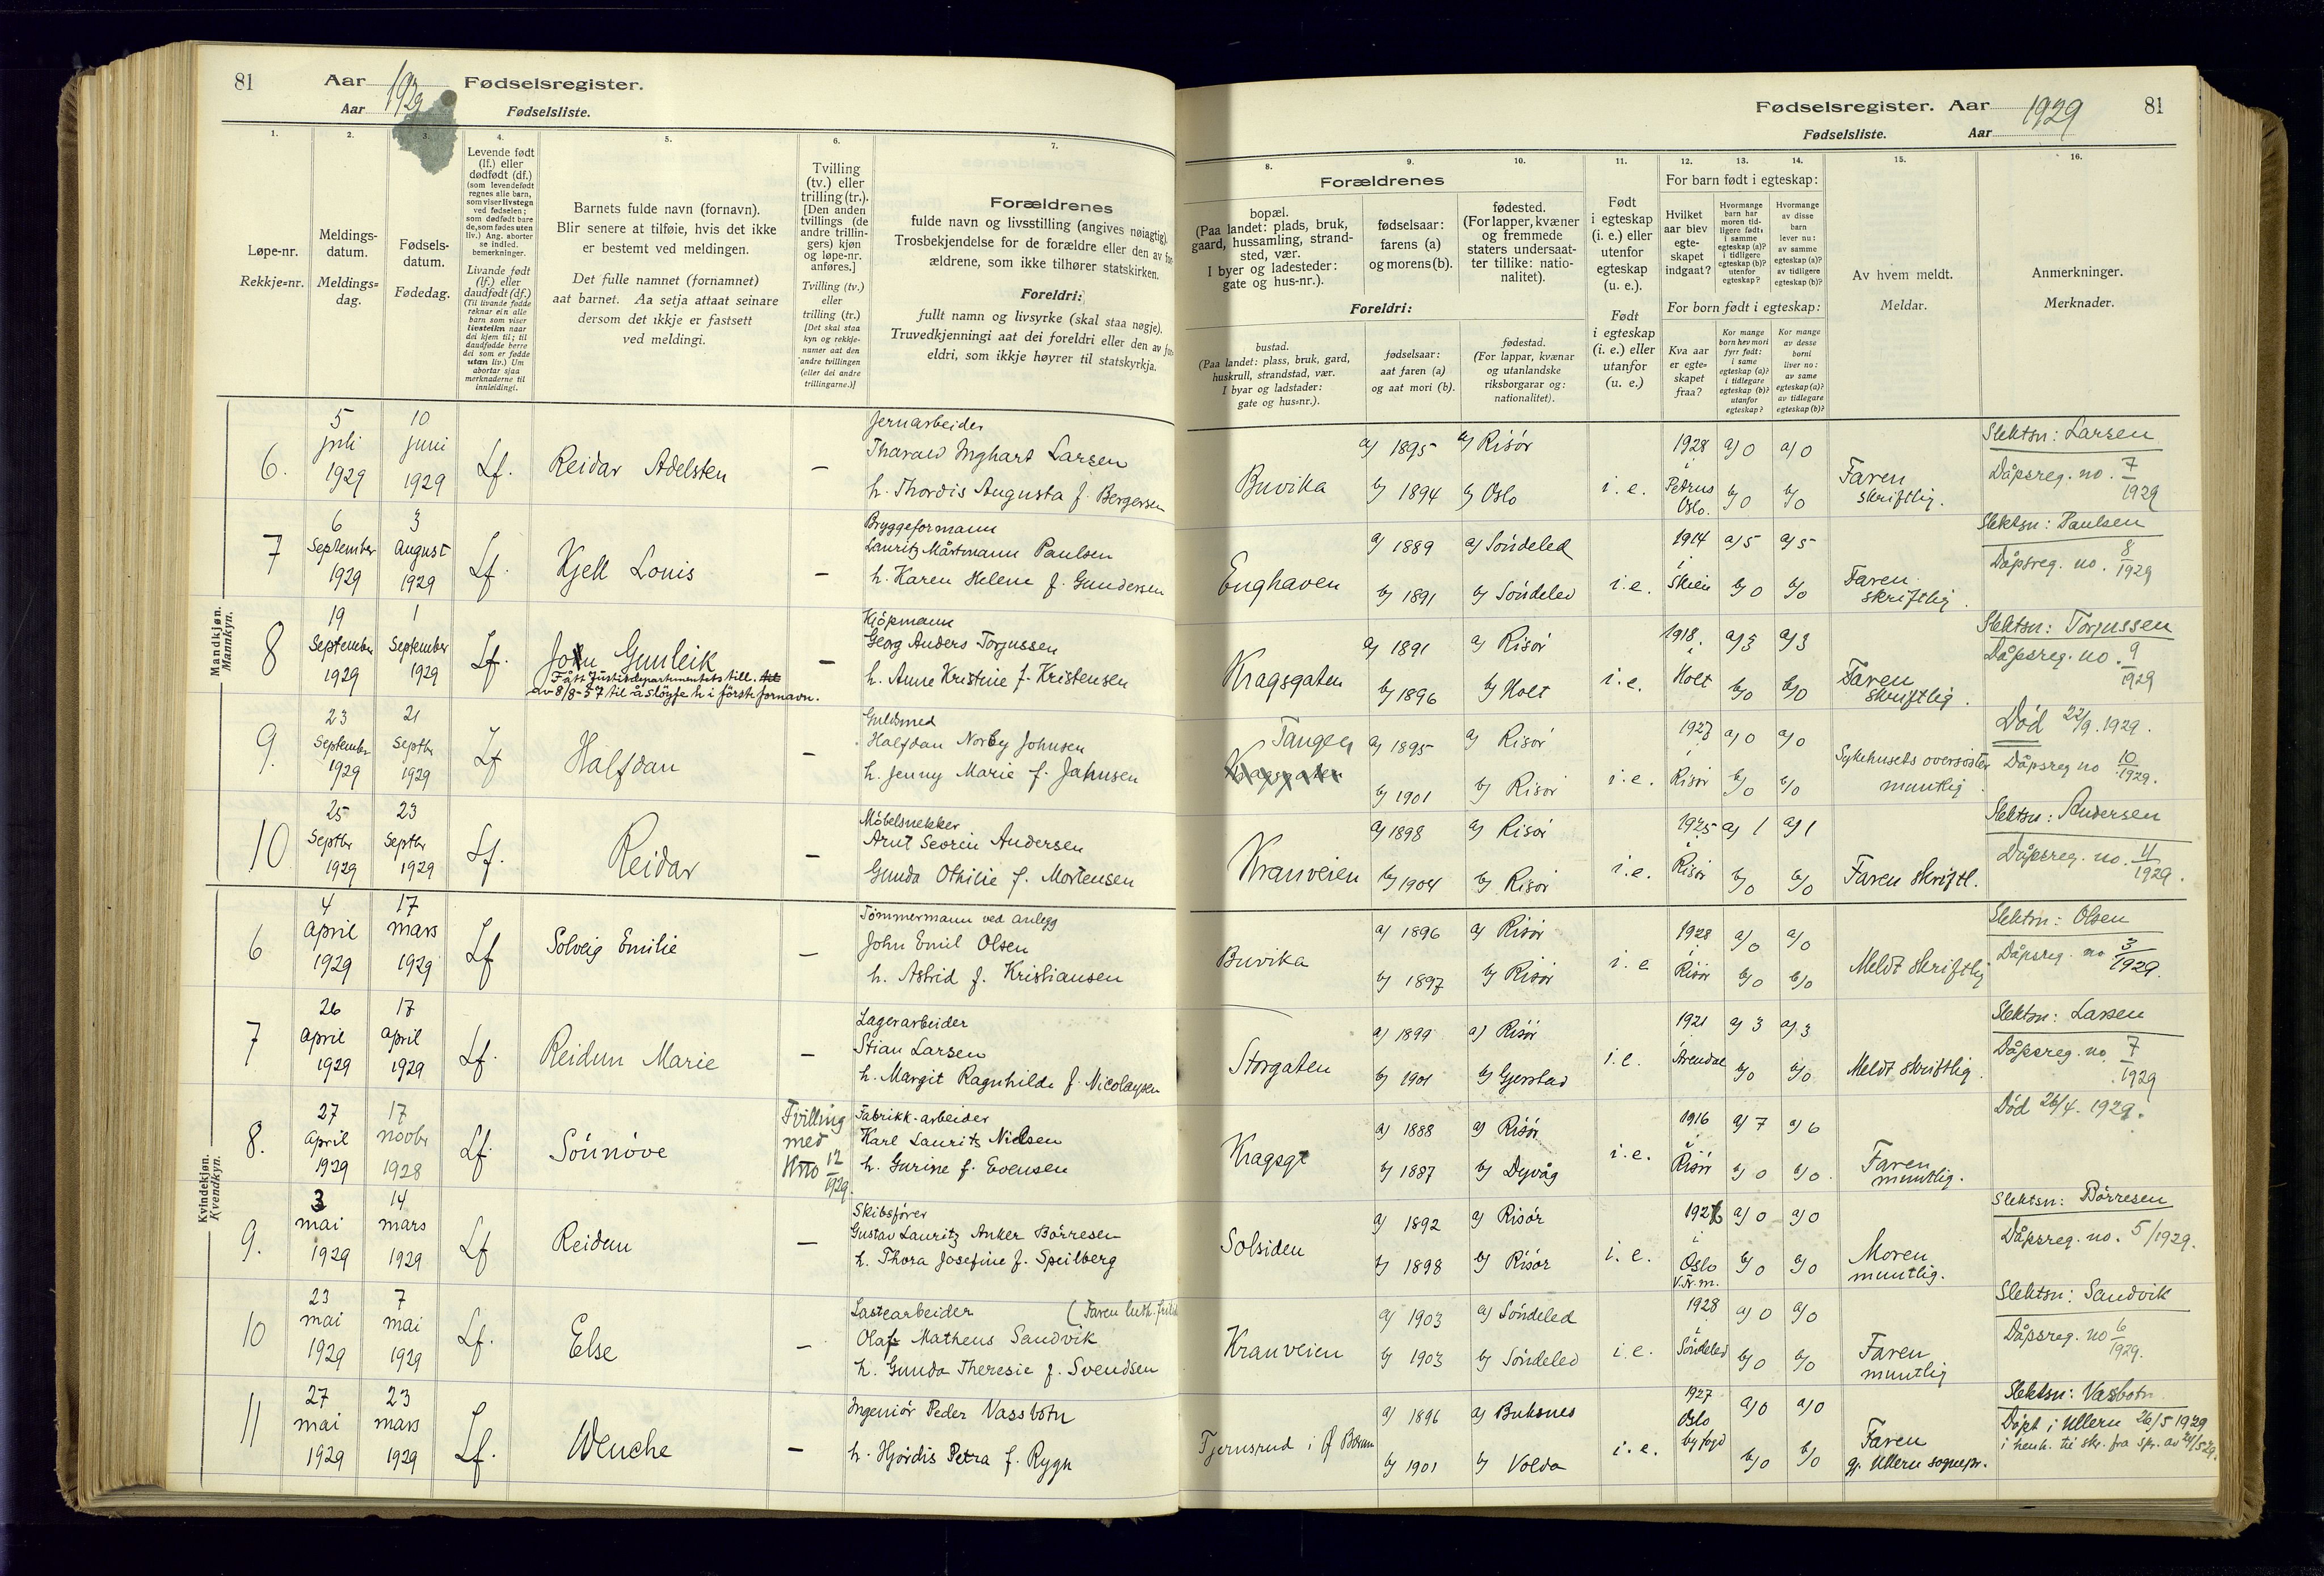 81 Aar 1929 Fødselsregister.
Aar Fødselsliste.
1. 2. 3. 4. 5. 6. 7.
Løpe-nr.
Rekkje-nr.
Meldings-
datum.
Meldings-
dag.
Fødsels-
datum.
Fødedag.
Levende født
(lf.) eller
dødfødt (df.)
(som levendefødt
regnes alle barn,
som viser livstegn
ved fødselen;
som dødfødt bare
de, som fødes uten
liv.) Ang. aborter
se indled.
bemerkninger.
Livande født
(lf.) eller
daudfødt (df.)
(Til livande fødde
reknar ein alle
barn som viser
livsteikn naar
dei kjem til; til
daudfødde berre
dei som er fødde
utan liv.) Um
abortar sjaa
merknaderne til
innleidingi.
Barnets fulde navn (fornavn).
Blir senere at tilføie, hvis det ikke
er bestemt ved meldingen.
Det fulle namnet (fornamnet)
aat barnet. Aa setja attaat seinare
dersom det ikkje er fastsett
ved meldingi.
Tvilling
(tv.) eller
trilling (tr.).
[Den anden
tvillings (de
andre trillin-
gers) kjøn
og løpe-nr.
anføres.]
Tvilling (tv.)
eller
trilling (tr.)
[Det skal staa
kyn og rekkje-
numer aat den
andre tvillingen
(eller dei andre
trillingarne.)]
Forældrenes
fulde navn og livsstilling (angives nøiagtig).
Trosbekjendelse for de forældre eller den av for-
ældrene, som ikke tilhører statskirken.
Foreldri:
fullt namn og livsyrke (skal staa nøgje).
Truvedkjenningi aat dei foreldri eller den av for-
eldri, som ikkje høyrer til statskyrkja.
Mandkjøn.
Mannkyn.
6. 5 juli 1929 10 juni 1929 Lf. Reidar Adelsten –
Jernarbeider
Tharald Inghart Larsen
h. Thordis Augusta f. Bergersen
7 6 September 1929 3 August 1929 Lf. Kjell Louis –
Bryggeformann
Lauritz Mårtmann Paulsen
h. Karen Helene f. Gundersen
8 19 September 1929 1 September 1929 Lf. John Gunleik –
Fått Justisdepartmentets till. til
av 8/8-57 til å sløyfe h i første fornavn.
Kjöpmann
Georg Anders Torjussen
h. Anne Kristine f. Kristensen
9. 23 September 1929 21 Septbr 1929 Lf Halfdan –
Guldsmed
Halfdan Norby Johnsen
h. Jenny Marie f. Jahnsen
10 25 Septbr 1929 23 Septbr 1929 Lf. Reidar –
Möbelsnekker
Arnt Severin Andersen
Gunda Othilie f. Mortensen
Kvindekjøn.
Kvendkyn.
6 4 april 1929 17 mars 1929 Lf Solveig Emilie –
Tømmermann ved anlegg
John Emil Olsen
h. Astrid f. Kristiansen
7 26 april 1929 17 april 1929 Lf. Reidun Marie –
Lagerarbeider
Stian Larsen
h. Margit Ragnhilde f. Nicolaysen
8. 27 april 1929 17 novbr 1928 Lf. Sönnöve
Tvilling med No 12/1929.
Fabrikk-arbeider
Karl Lauritz Nielsen
h. Gurine f. Evensen
9. 3 mai 1929 14 mars 1929 Lf Reidun –
Skibsfører
Gustav Lauritz Anker Börresen
h. Thora Josefine f. Speilberg
10 23 mai 1929 7 mai 1929 Lf. Else –
Lastearbeider (Faren luth. frik
Olaf Matheus Sandvik
h. Gunda Theresie f. Svendsen
11 27 mai 1929 23 mars 1929 Lf. Wenche –
Ingeniör Peder Vassbotn
h. Hjördis Petra f. Rygh
Fødselsregister. Aar 1929 81
Fødselsliste. Aar
8. 9. 10. 11. 12. 13. 14. 15. 16.
Forældrenes
bopæl.
(Paa landet: plads, bruk,
gaard, hussamling, strand-
sted, vær.
I byer og ladesteder:
gate og hus-nr.).
fødselsaar:
farens (a)
og morens (b).
fødested.
(For lapper, kvæner
og fremmede
staters undersaat-
ter tillike: natio-
nalitet).
Foreldri:
bustad.
(Paa landet: plass, bruk, gard,
huskrull, strandstad, vær.
I byar og ladstader:
gate og hus-nr.).
fødselsaar:
aat faren (a)
og aat mori (b).
fødestad.
(For lappar, kvænar
og utanlandske
riksborgarar og:
nationalitet).
Født
i egteskap
(i. e.) eller
utenfor
egteskap
(u. e.).
Født
i egteskap
(i. e.) eller
utanfor
(u. e.)
For barn født i egteskap:
Hvilket
aar blev
egte-
skapet
indgaat?
Hvormange
barn har
moren tid-
ligere født:
i samme
egteskap (a)?
i tidligere
egteskap (b)?
utenfor
egteskap?
Hvormange
av disse
barn
lever nu:
av samme
egteskap (a)?
av tidligere
egteskap (b)?
For born født i egteskap:
Kva aar
er egte-
skapet
fraa?
Kor mange
born hev mori
fyrr født:
i same
egteskap (a)?
i tidlegare
egteskap (b)?
utanfor
egteskap?
Kor mange
av desse
borni
liver no:
av same
egteskap (a)?
av tidlegare
egteskap (b)?
Av hvem meldt.
Meldar.
Anmerkninger.
Merknader.
Buvika a) 1895 a) Risör b) 1894 b) Oslo i. e. 1928 i Petrus Oslo. a) 0 a) 0 b) 0 b) 0 Faren skriftlig.
Slektsn: Larsen
Dåpsreg. no. 7/1929
Enghaven a) 1889 a) Söndeled b) 1891 b) Söndeled i. e. 1914 i Skien a) 5 a) 5 b) 0 b) 0 Faren skriftlig.
Slektsn: Paulsen
Dåpsreg. no. 8/1929
Kragsgaten a) 1891 a) Risör b) 1896 b) Holt i. e. 1918. i Holt a) 3 a) 3 b) 0 b) 0 Faren skriftlig.
Slektsn: Torjussen
Dåpsreg. no. 9/1929
Tangen Kragsgaten a) 1895 a) Risör b) 1901 b) Risör i. e. 1927 i Risör a) 0 a) 0 b) 0 b) 0 Sykehusets oversöster muntlig.
Död 22/9. 1929.
Dåpsreg no 10/1929.
Kranveien a) 1898 a) Risör b) 1904 b) Risör i. e. 1925 i Risör a) 1 a) 1 b) 0 b) 0 Faren skriftl.
Slektsn: Andersen
Dåpsreg. no. 11/1929.
Buvika a) 1896 a) Risör b) 1897 b) Risör i. e 1928 i Risör a) 0 a) 0 b) 0 b) 0 Meldt skriftlig
Slektsn: Olsen
Dåpsreg. no 3/1929.
Storgaten a) 1899 a) Risör b) 1901 b) Gjerstad i. e. 1921 i Arendal a) 3 a) 3 b) 0 b) 0 Meldt skriftlig.
Slektsn: Larsen
Dåpsreg. no. 7/1929
Kragsgt a) 1888 a) Risör b) 1887 b) Dyvåg i. e. 1916 i Risör a) 7 a) 6 b) 0 b) 0. Faren muntlig.
Död 26/4. 1929.
Solsiden a) 1892 a) Risör b) 1898 b) Risör i. e. 1926 i Oslo V.F.m. a) 0 a) 0 b) 0 b) 0 Moren muntlig.
Slektsn: Börresen
Dåpsreg. no. 5/1929.
Kranveien a) 1903 a) Söndeled b) 1903 b) Söndeled i. e. 1928 i Söndeled a) 0 a) 0 b) 0 b) 0 Faren muntlig
Slektsn: Sandvik
Dåpsreg. no 6/1929.
Tjernsrud i Ø Bærum a) 1896 a) Buksnes b) 1901 b) Volda i. e. 1927 Oslo byfogd a) 0 a) 0 b) 0 b) 0 Faren gj. Ullern sognepr.
Slektsn: Vassbotn
Döpt i Ullern 26/5 1929
i henh. til skr. fra spr. av 24/5 29.